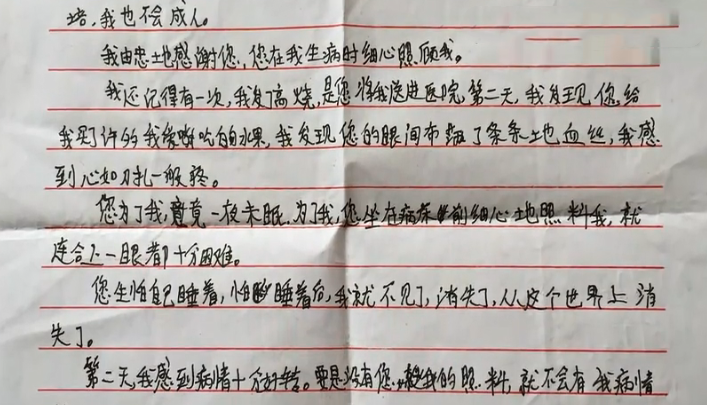 培，我也不会成人。
我由忠地感谢您，您在我生病时细心照顾我。
我还记得有一次，我发了高烧，是您将我送进医院，第二天，我发现您给
我买了许多我爱吃的水果，我发现您的眼间布满了条条地血丝，我感
到心如刀扎一般疼。
您为了我，竟一夜未眠，为了我，您坐在病床前细心地照料我，就
连合上一眼都十分困难。
您生怕自己睡着，怕睡着后，我就不见了，消失了，从这个世界上消
失了。
第二天，我感到病情十分好转。要是没有您，我的照料，就不会有我病情